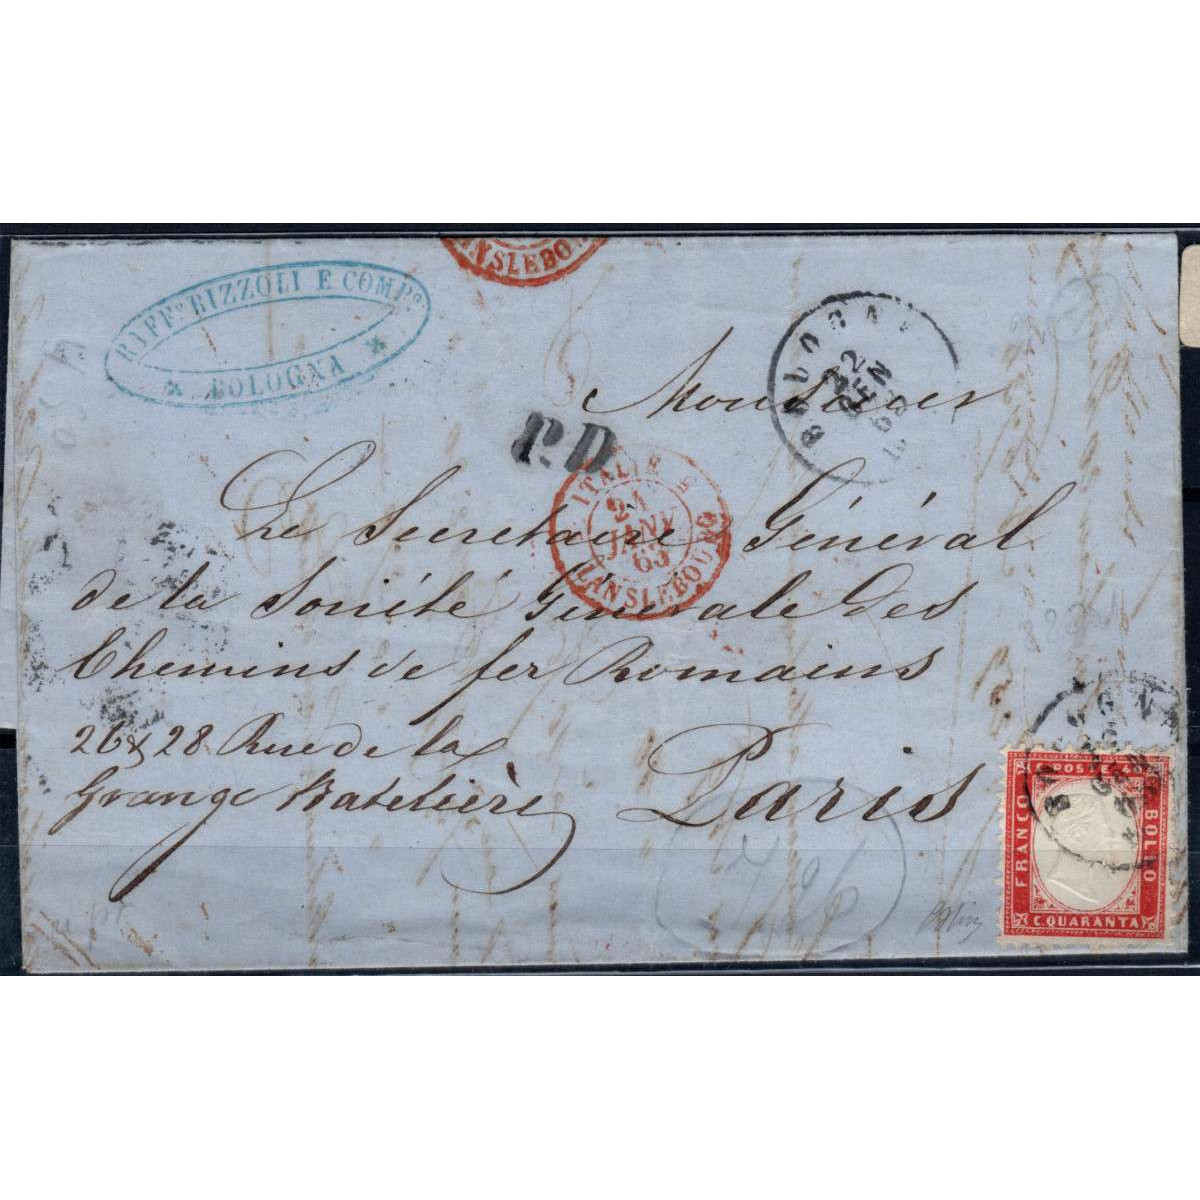 ANSLEBO
RAFF.e RIZZOLI E COMP.o
BOLOGNA
BOLOGNA
22
GEN
63
P.D
Monsieur
ITALIE
24
JANV
63
LANSLEBOURG
Le Secretaire Général
de la Société Générale des
Chemins de fer Romains
26 & 28 Rue de la
Grange Batelière Paris
726
FRANCO
BOLLO
C. QUARANTA